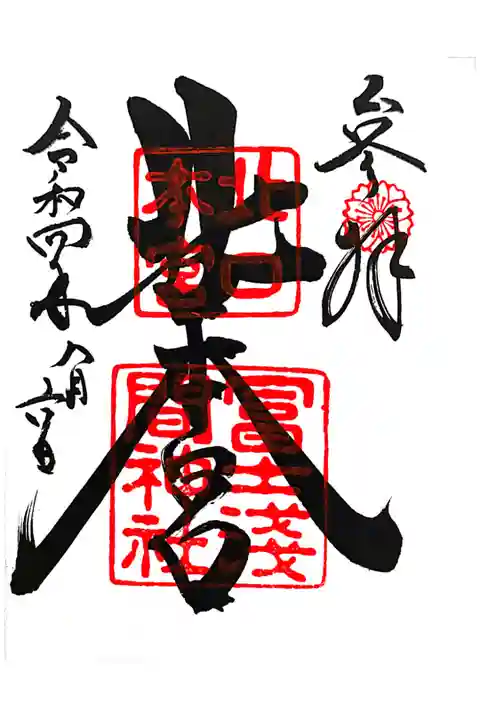 參拝
北口本宮
北口
本宮
冨士淺
間神社
令和四年八月